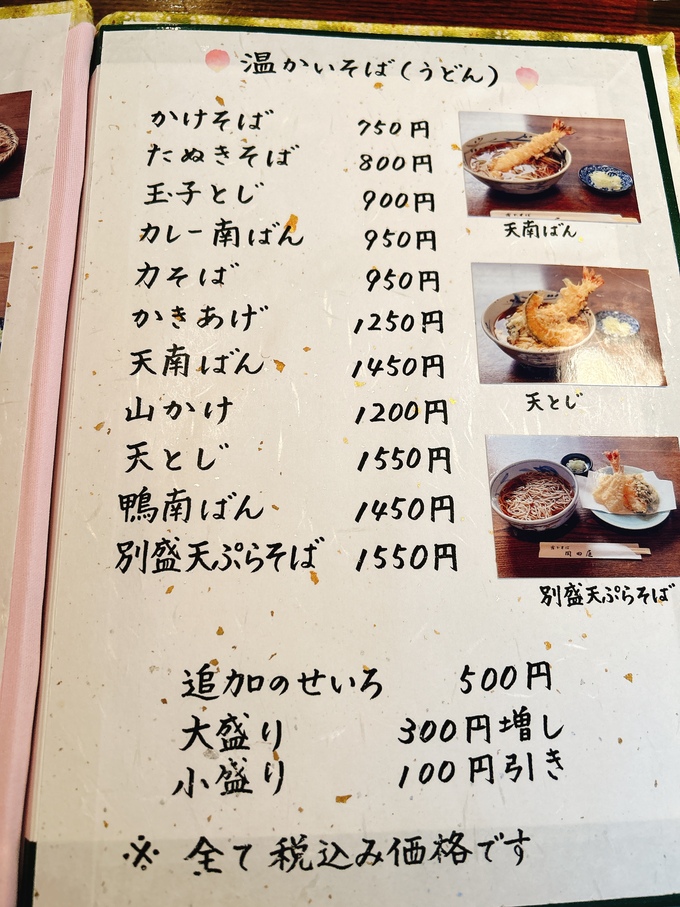 温かいそば(うどん)
かけそば 750円
たぬきそば 800円
玉子とじ 900円
カレー南ばん 950円
力そば 950円
かきあげ 1250円
天南ばん 1450円
山かけ 1200円
天とじ 1550円
鴨南ばん 1450円
別盛天ぷらそば 1550円
天南ばん
天とじ
別盛天ぷらそば
追加のせいろ 500円
大盛り 300円増し
小盛り 100円引き
※ 全て税込み価格です